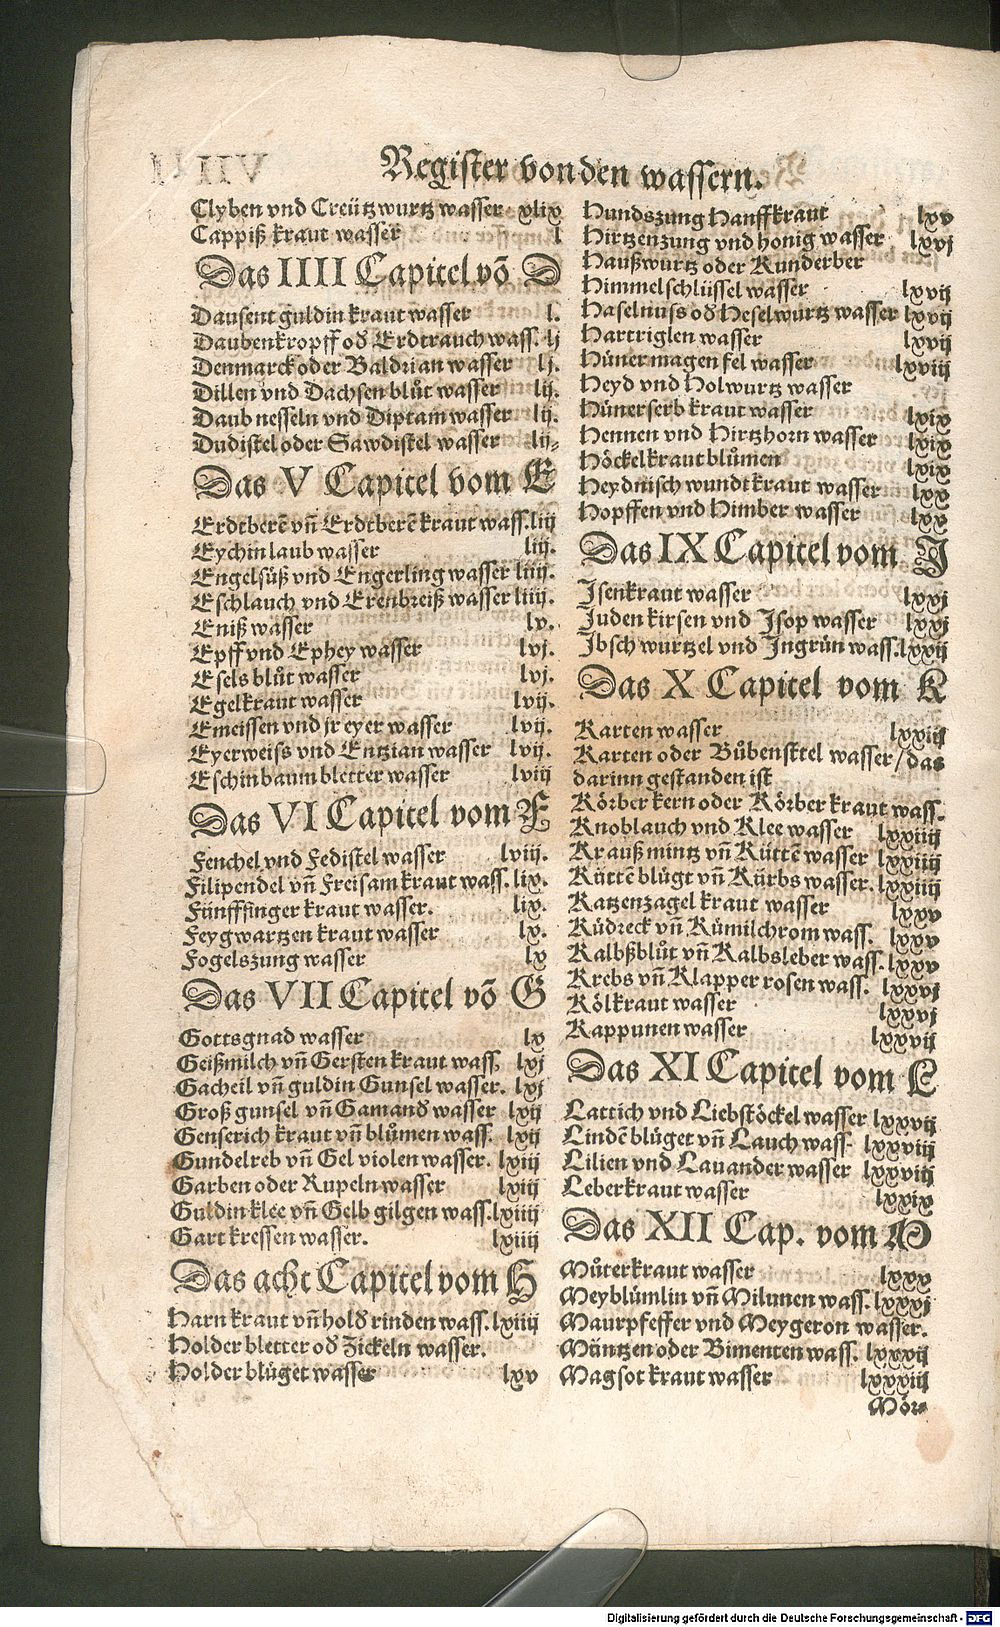 Register von den wassern.
Clyben vnd Creützwurtz wasser xlix
Cappiß kraut wasser l
Das IIII Capitel võ D
Dausent guldin kraut wasser l.
Daubenkropff od Erdtrauch wass. lj
Denmarck oder Baldrian wasser lj.
Dillen vnd Dachsen blůt wasser lij.
Daub nesseln vnd Diptam wasser lij.
Dudistel oder Sawdistel wasser lij.
Das V Capitel vom E
Erdtberē vñ Erdtberē kraut wass. liij
Eychin laub wasser liij.
Engelsüß vnd Engerling wasser liiij.
Eschlauch vnd Erenbreiß wasser liiij.
Eniß wasser lv.
Epff vnd Ephey wasser lvj.
Esels blůt wasser lvj.
Egelkraut wasser lvij.
Emeissen vnd jr eyer wasser lvij.
Eyerweiss vnd Entzian wasser lvij.
Eschinbaum bletter wasser lviij
Das VI Capitel vom F
Fenchel vnd Fedistel wasser lviij.
Filipendel vñ Freisam kraut wass. lix.
Fünffinger kraut wasser. lix.
Feygwartzen kraut wasser lx.
Fogelszung wasser lx
Das VII Capitel võ G
Gottsgnad wasser lx
Geißmilch vñ Gersten kraut wass. lxj
Gacheil vñ guldin Gunsel wasser. lxj
Groß gunsel vñ Gamand wasser lxij
Genserich kraut vñ blůmen wass. lxij
Gundelreb vñ Gel violen wasser. lxiij
Garben oder Rupeln wasser lxiij
Guldin klee vñ Gelb gilgen wass. lxiiij
Gart kressen wasser. lxiiij
Das acht Capitel vom H
Harn kraut vñ hold rinden wass. lxiiij
Holder bletter od Zickeln wasser.
Holder blüget wasser lxv
Hundszung Hanffkraut lxv
Hirtzenzung vnd honig wasser lxvj
Haußwurtz oder Kunderber
Himmelschlüssel wasser lxvij
Haselnuss od Heselwurtz wasser lxvij
Hartriglen wasser lxvij
Hüner magen fel wasser lxviij
Heyd vnd Holwurtz wasser
Hünerserb kraut wasser lxix
Hennen vnd Hirtzhorn wasser lxix
Höckelkraut blůmen lxix
Heydnisch wundtkraut wasser lxx
Hopffen vnd Himber wasser lxx
Das IX Capitel vom J
Jsenkraut wasser lxxj
Juden kirsen vnd Jsop wasser lxxj
Jbsch wurtzel vnd Jngrün wass. lxxij
Das X Capitel vom K
Karten wasser lxxiij
Karten oder Bůbensttel wasser/ das
darinn gestanden ist
Körber kern oder Körber kraut wass.
Knoblauch vnd Klee wasser lxxiiij
Krauß mintz vñ Küttē wasser lxxiiij
Küttē blůgt vñ Kürbs wasser. lxxiiij
Katzenzagel kraut wasser lxxv
Küdreck vñ Kümilchrom wass. lxxv
Kalbßblůt vñ Kalbsleber wass. lxxv
Krebs vñ Klapper rosen wass. lxxvj
Kölkraut wasser lxxvj
Kappunen wasser lxxvij
Das XI Capitel vom L
Lattich vnd Liebstöckel wasser lxxvij
Lindē blüget vñ Lauch wass. lxxviij
Lilien vnd Lauander wasser lxxviij
Leberkraut wasser lxxix
Das XII Cap. vom M
Můterkraut wasser lxxx
Meyblümlin vñ Milunen wass. lxxxj
Maurpfeffer vnd Meygeron wasser.
Müntzen oder Bimenten wass. lxxxij
Magsot kraut wasser lxxxiij
Mör-
Digitalisierung gefördert durch die Deutsche Forschungsgemeinschaft - DFG